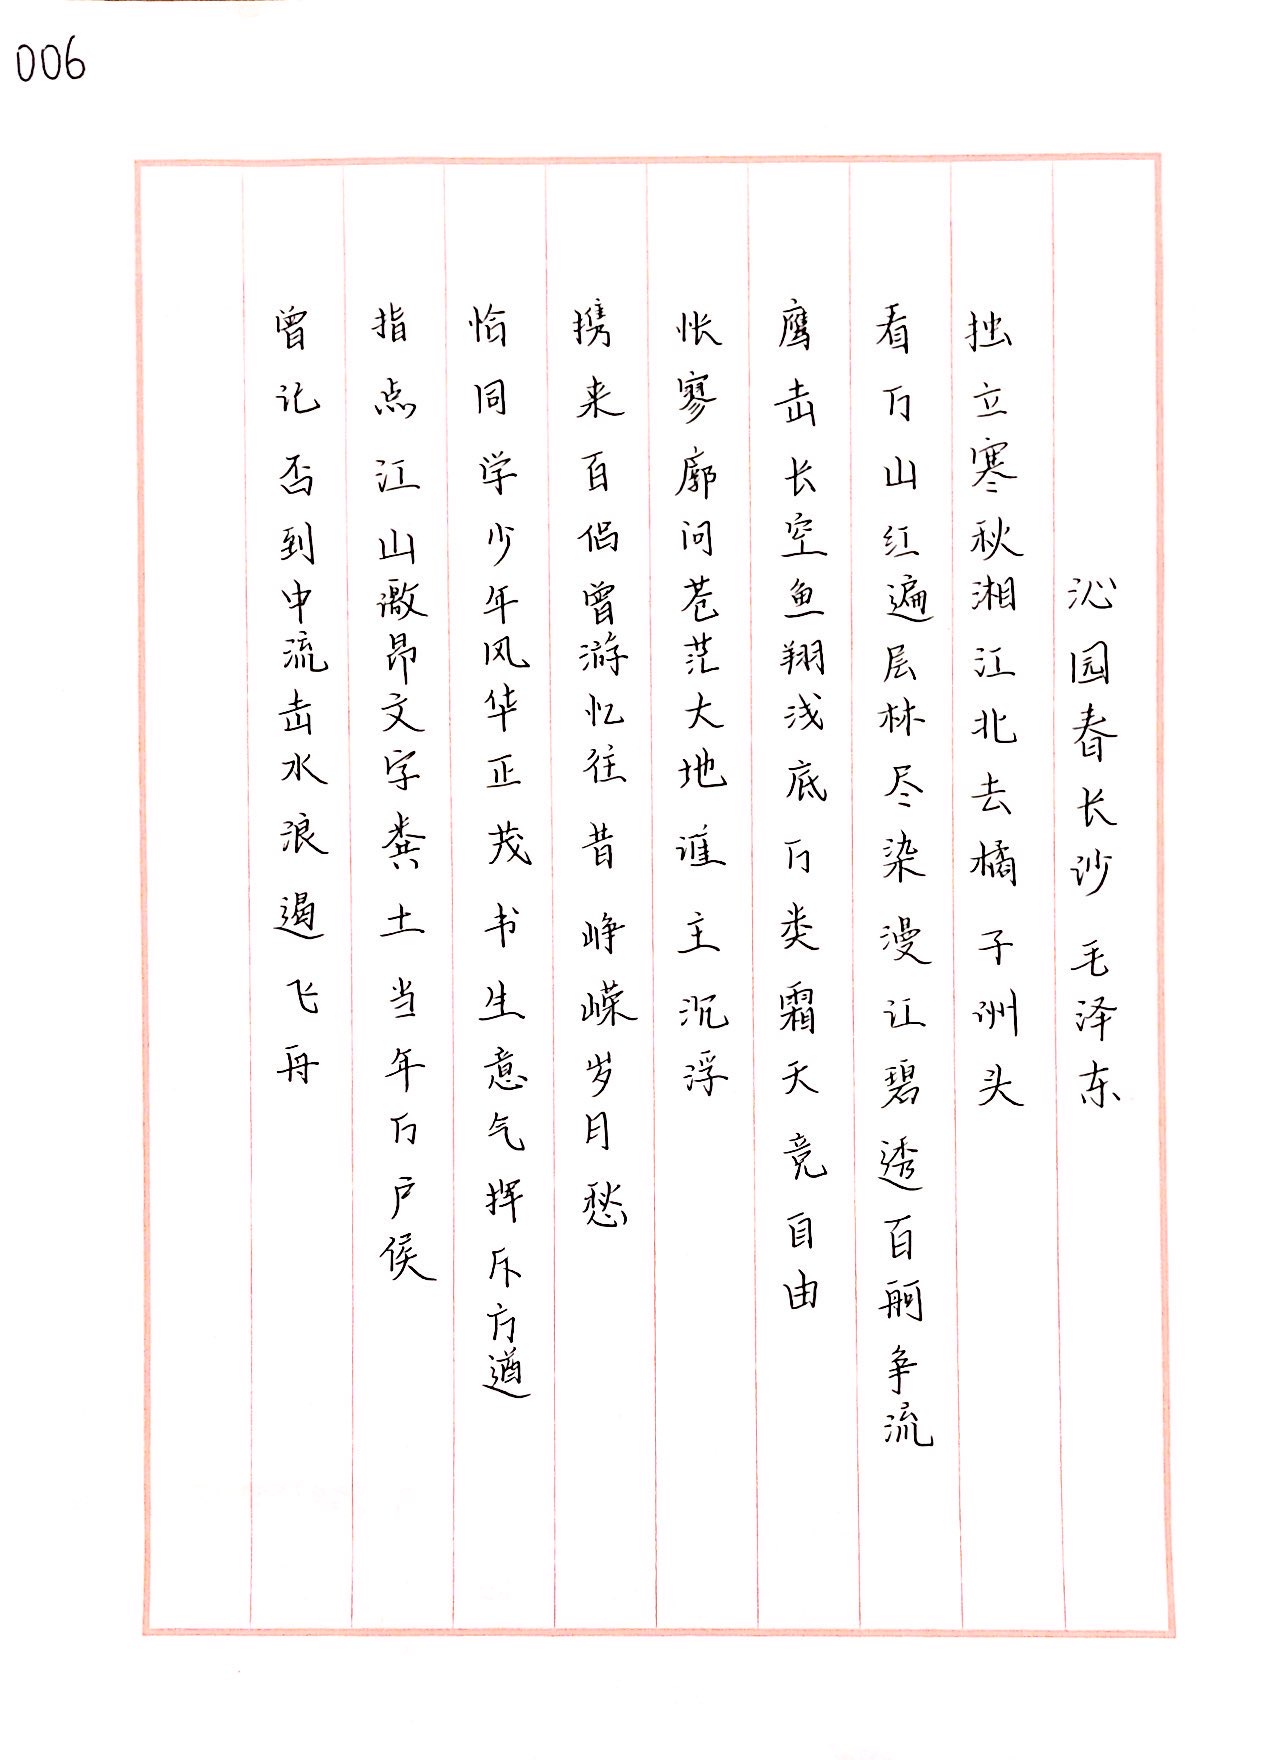 006
沁园春长沙 毛泽东
独立寒秋湘江北去橘子洲头
看万山红遍层林尽染漫江碧透百舸争流
鹰击长空鱼翔浅底万类霜天竞自由
怅寥廓问苍茫大地谁主沉浮
携来百侣曾游忆往昔峥嵘岁月愁
恰同学少年风华正茂书生意气挥斥方遒
指点江山激昂文字粪土当年万户侯
曾记否到中流击水浪遏飞舟